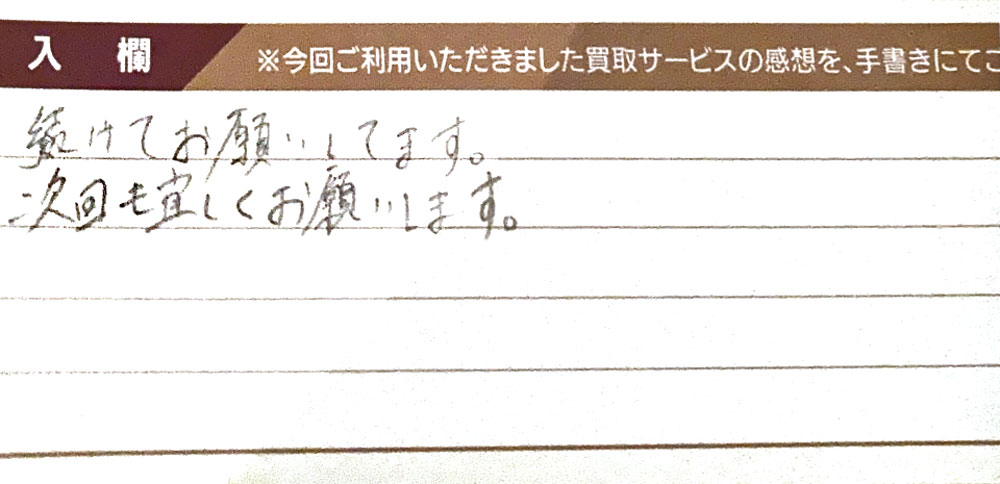 入欄 ※今回ご利用いただきました買取サービスの感想を、手書きにてご
続けてお願いしてます。
次回も宜しくお願いします。